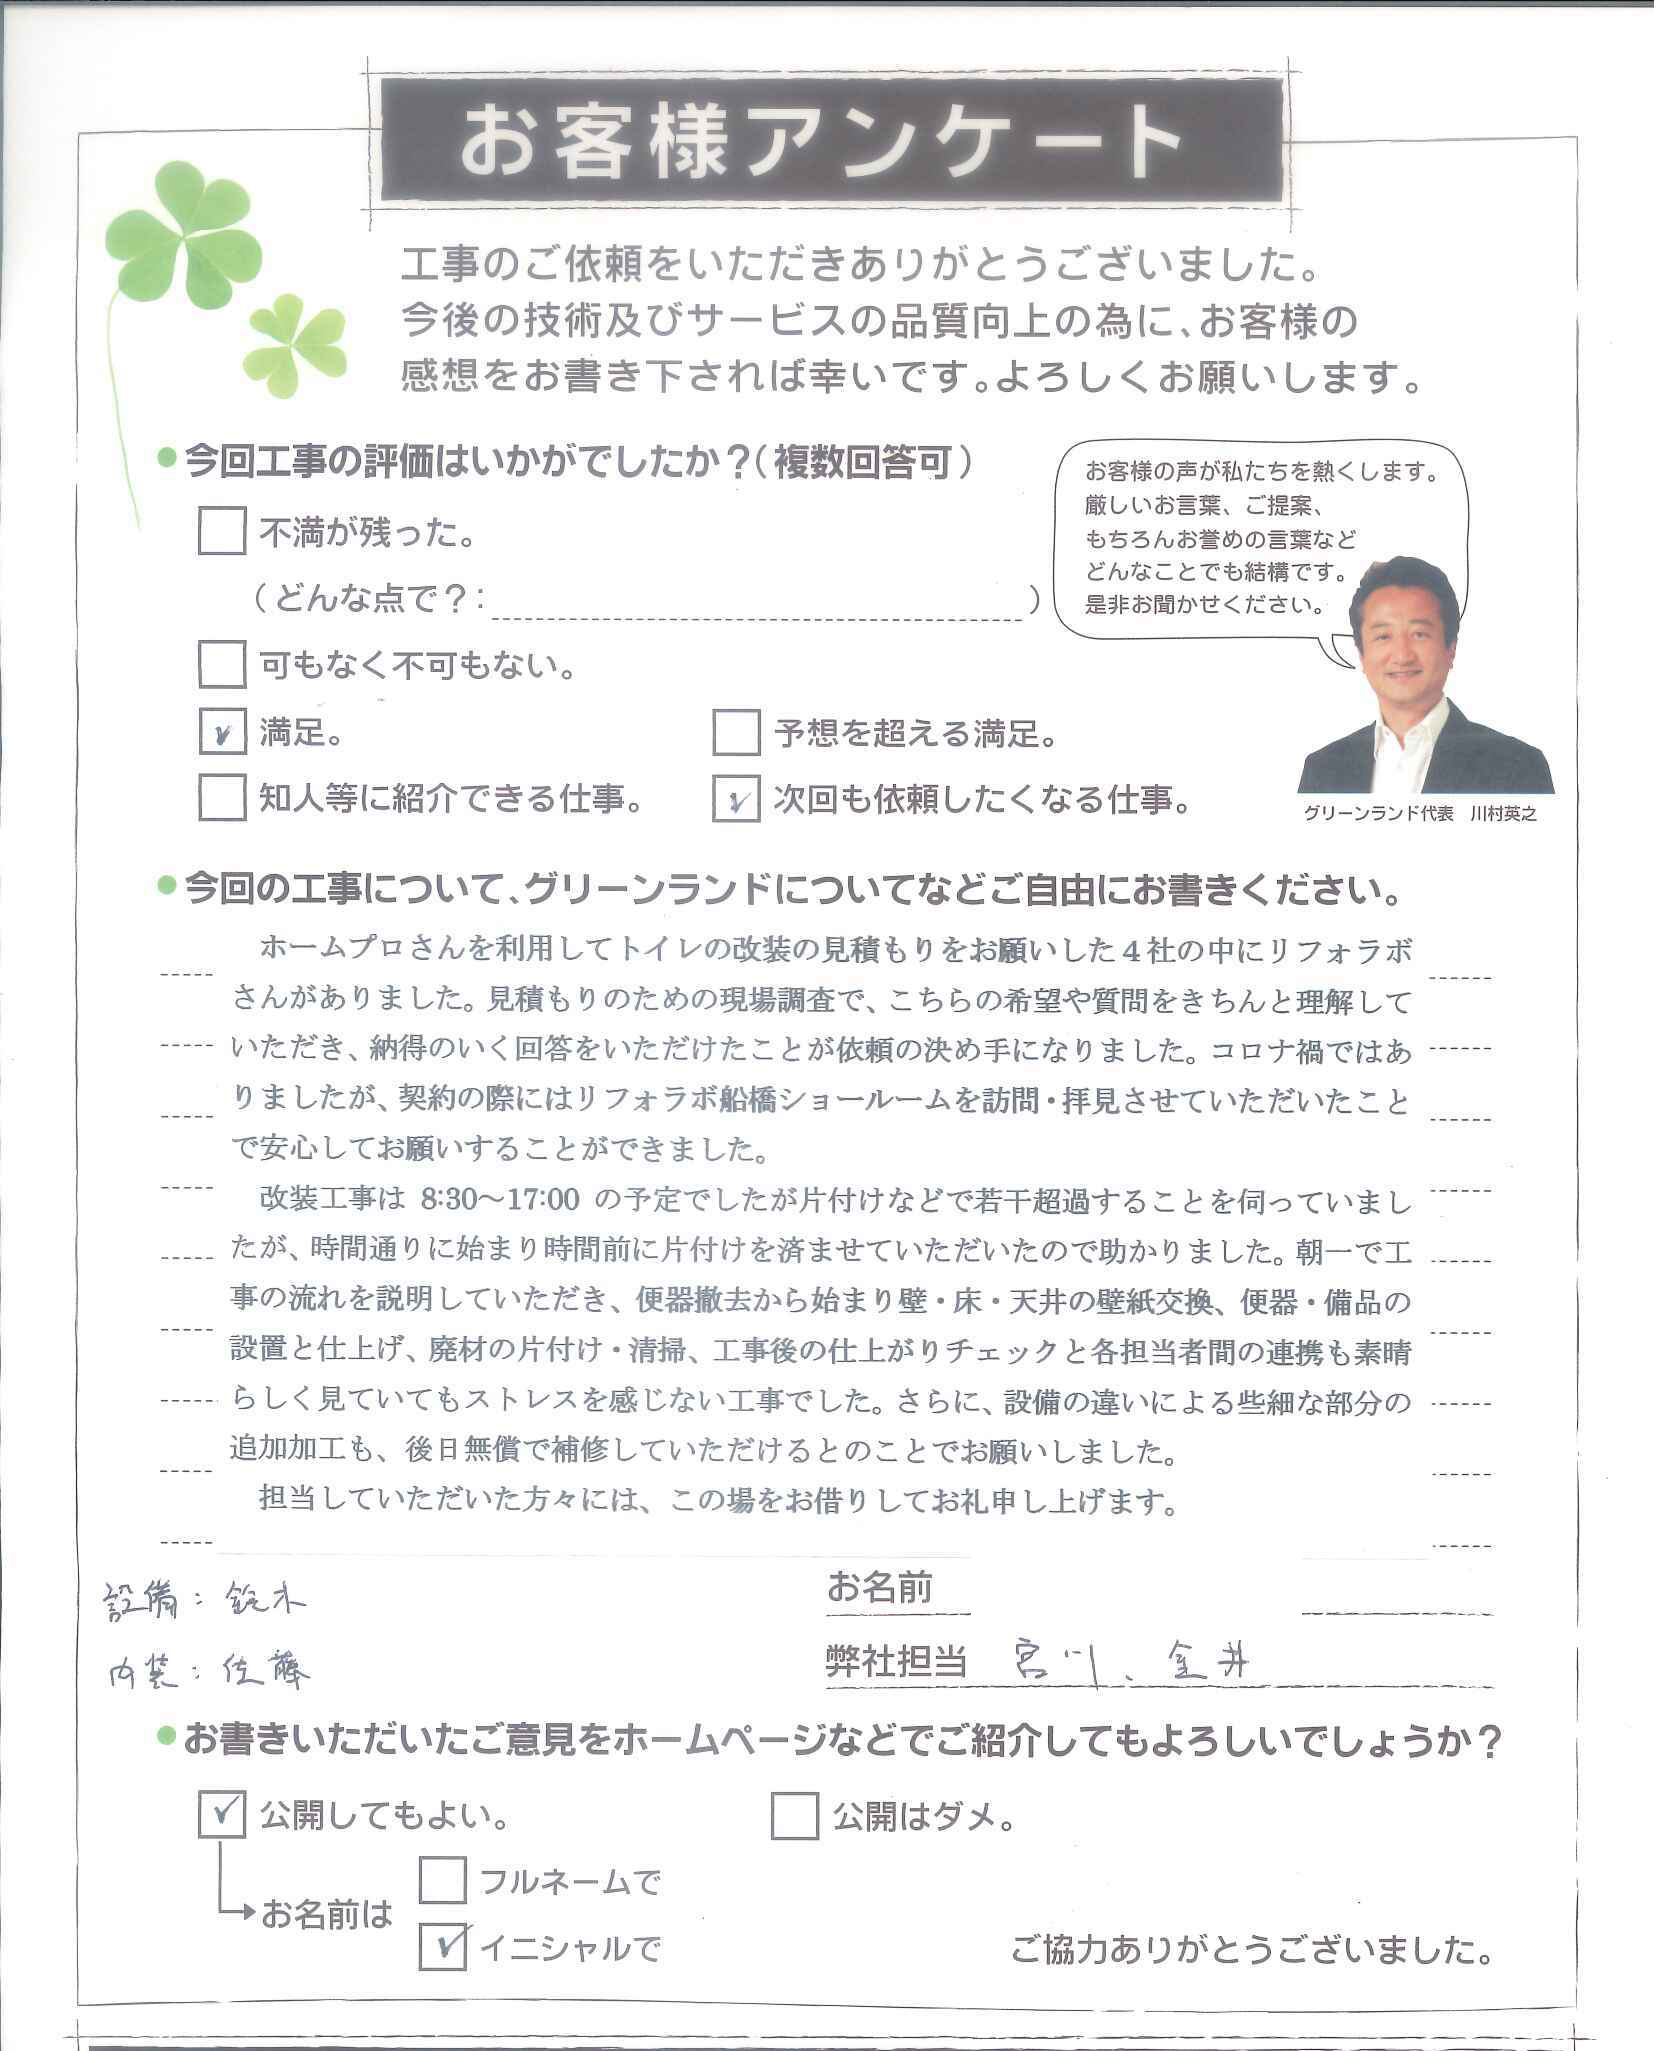 お客様アンケート
工事のご依頼をいただきありがとうございました。
今後の技術及びサービスの品質向上の為に、お客様の
感想をお書き下されば幸いです。よろしくお願いします。
今回工事の評価はいかがでしたか？（複数回答可）
お客様の声が私たちを熱くします。
厳しいお言葉、ご提案、
もちろんお誉めの言葉など
どんなことでも結構です。
是非お聞かせください。
グリーンランド代表 川村英之
不満が残った。
（どんな点で？： ）
可もなく不可もない。
満足。 予想を超える満足。
知人等に紹介できる仕事。 次回も依頼したくなる仕事。
今回の工事について、グリーンランドについてなどご自由にお書きください。
ホームプロさんを利用してトイレの改装の見積もりをお願いした４社の中にリフォラボ
さんがありました。見積もりのための現場調査で、こちらの希望や質問をきちんと理解して
いただき、納得のいく回答をいただけたことが依頼の決め手になりました。コロナ禍ではあ
りましたが、契約の際にはリフォラボ船橋ショールームを訪問・拝見させていただいたこと
で安心してお願いすることができました。
改装工事は 8:30～17:00 の予定でしたが片付けなどで若干超過することを伺っていまし
たが、時間通りに始まり時間前に片付けを済ませていただいたので助かりました。朝一で工
事の流れを説明していただき、便器撤去から始まり壁・床・天井の壁紙交換、便器・備品の
設置と仕上げ、廃材の片付け・清掃、工事後の仕上がりチェックと各担当者間の連携も素晴
らしく見ていてもストレスを感じない工事でした。さらに、設備の違いによる些細な部分の
追加加工も、後日無償で補修していただけるとのことでお願いしました。
担当していただいた方々には、この場をお借りしてお礼申し上げます。
設備：鈴木
内装：佐藤
お名前
弊社担当 宮川、金井
お書きいただいたご意見をホームページなどでご紹介してもよろしいでしょうか？
公開してもよい。 公開はダメ。
お名前は
フルネームで
イニシャルで
ご協力ありがとうございました。